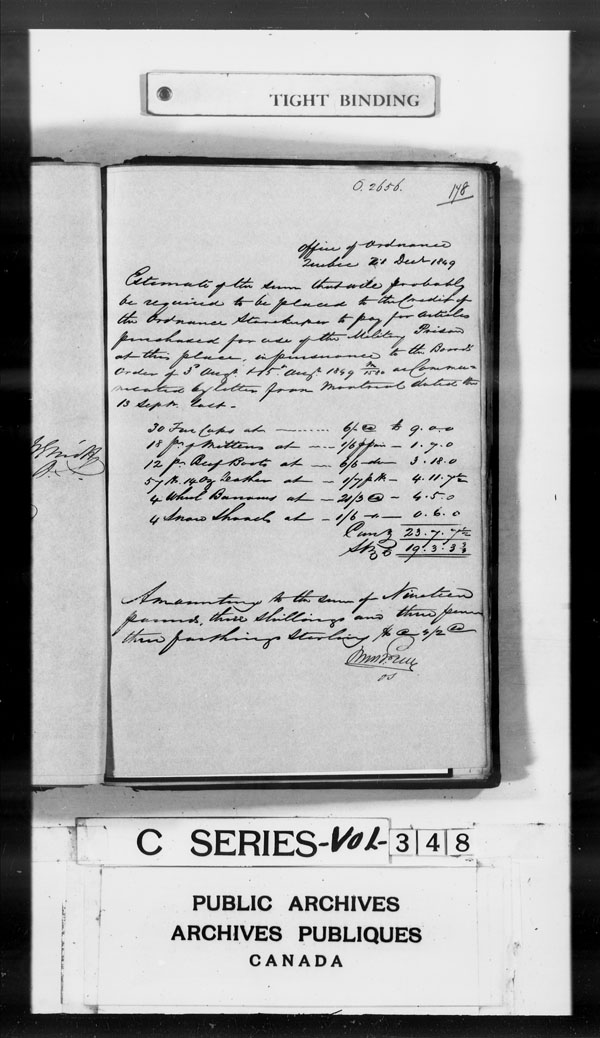 TIGHT BINDING
O. 2656.
178
Office of Ordnance
Quebec 21 Decr 1849
Estimate of the sum that will probably
be required to be placed to the Credit of
the Ordnance Storekeeper to pay for articles
purchased for use of the Military Prison
at this place, in pursuance to the Boards
Order of 3d Augt & 15 Augt 1849 M/1580 as Commu-
nicated by letter from Montreal dated the
13 Septr last.
30 Fur Caps at 6/. @ £ 9.0.0
18 prs of Mittens at 1/6 p pr 1.7.0
12 prs Beef Boots at 6/6 do 3.18.0
57 lb. 14 oz leather at 1/7 p lb 4.11.7½
4 Wheel Barrows at 21/3 @ 4.5.0
4 Snow Shovels at 1/6 0.6.0
Curry 23.7.7½
Stg £ 19.3.3¾
Amounting to the sum of Nineteen
pounds, three shillings and three pence
three farthings Sterling @ 4/2 @
OS
C SERIES-VOL-348
PUBLIC ARCHIVES
ARCHIVES PUBLIQUES
CANADA